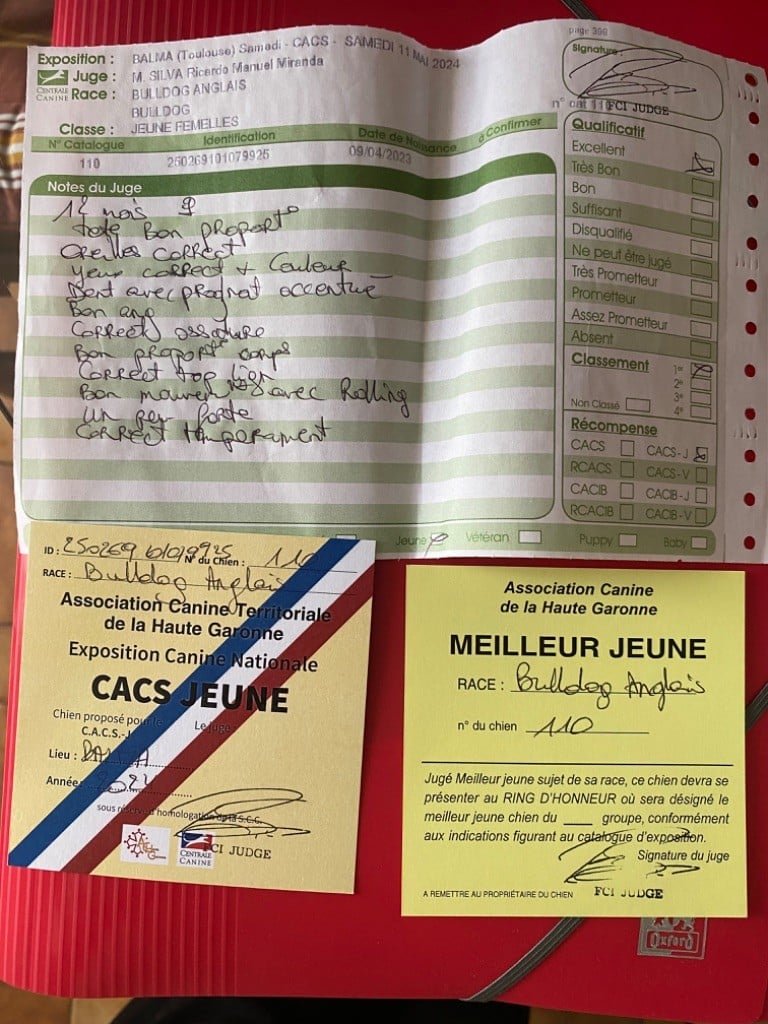 page 398
Exposition : BALMA (Toulouse) Samedi - CACS - SAMEDI 11 MAI 2024
Juge : M. SILVA Ricardo Manuel Miranda
CENTRALE CANINE
Race : BULLDOG ANGLAIS
BULLDOG
Classe : JEUNE FEMELLES
n° cat 110
N° Catalogue Identification Date de Naissance à Confirmer
110 250269101079925 09/04/2023
Notes du Juge
12 mois ♀
tete Bon proport°
Oreilles correct
Yeux correct + Couleur
Dent avec prognat accentué
Bon
Correct ossature
Bon proport° corps
Correct top lign
Bon mouvem avec Rolling
un peu forte
Correct temperament
Signature :
FCI JUDGE
Qualificatif
Excellent
Très Bon
Bon
Suffisant
Disqualifié
Ne peut être jugé
Très Prometteur
Prometteur
Assez Prometteur
Absent
Classement
1er
2e
3e
Non Classé 4e
Récompense
CACS CACS-J
RCACS CACS-V
CACIB CACIB-J
RCACIB CACIB-V
Jeune Vétéran Puppy Baby
ID : 250269
N° du Chien : 110
RACE : Bulldog Anglais
Association Canine Territoriale
de la Haute Garonne
Exposition Canine Nationale
CACS JEUNE
Chien proposé pour le Le juge :
C.A.C.S.-J
Lieu : BALMA
Année 2024
sous réserve d'homologation de la S.C.C.
CENTRALE CANINE
FCI JUDGE
Association Canine
de la Haute Garonne
MEILLEUR JEUNE
RACE : Bulldog Anglais
n° du chien 110
Jugé Meilleur jeune sujet de sa race, ce chien devra se
présenter au RING D'HONNEUR où sera désigné le
meilleur jeune chien du ____ groupe, conformément
aux indications figurant au catalogue d'exposition.
Signature du juge
A REMETTRE AU PROPRIÉTAIRE DU CHIEN FCI JUDGE
Oxford